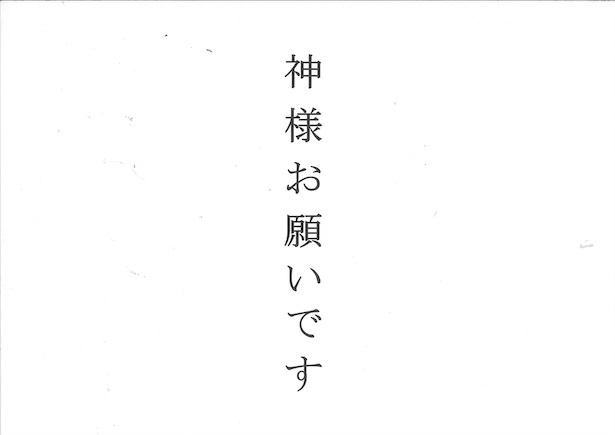 神様お願いです